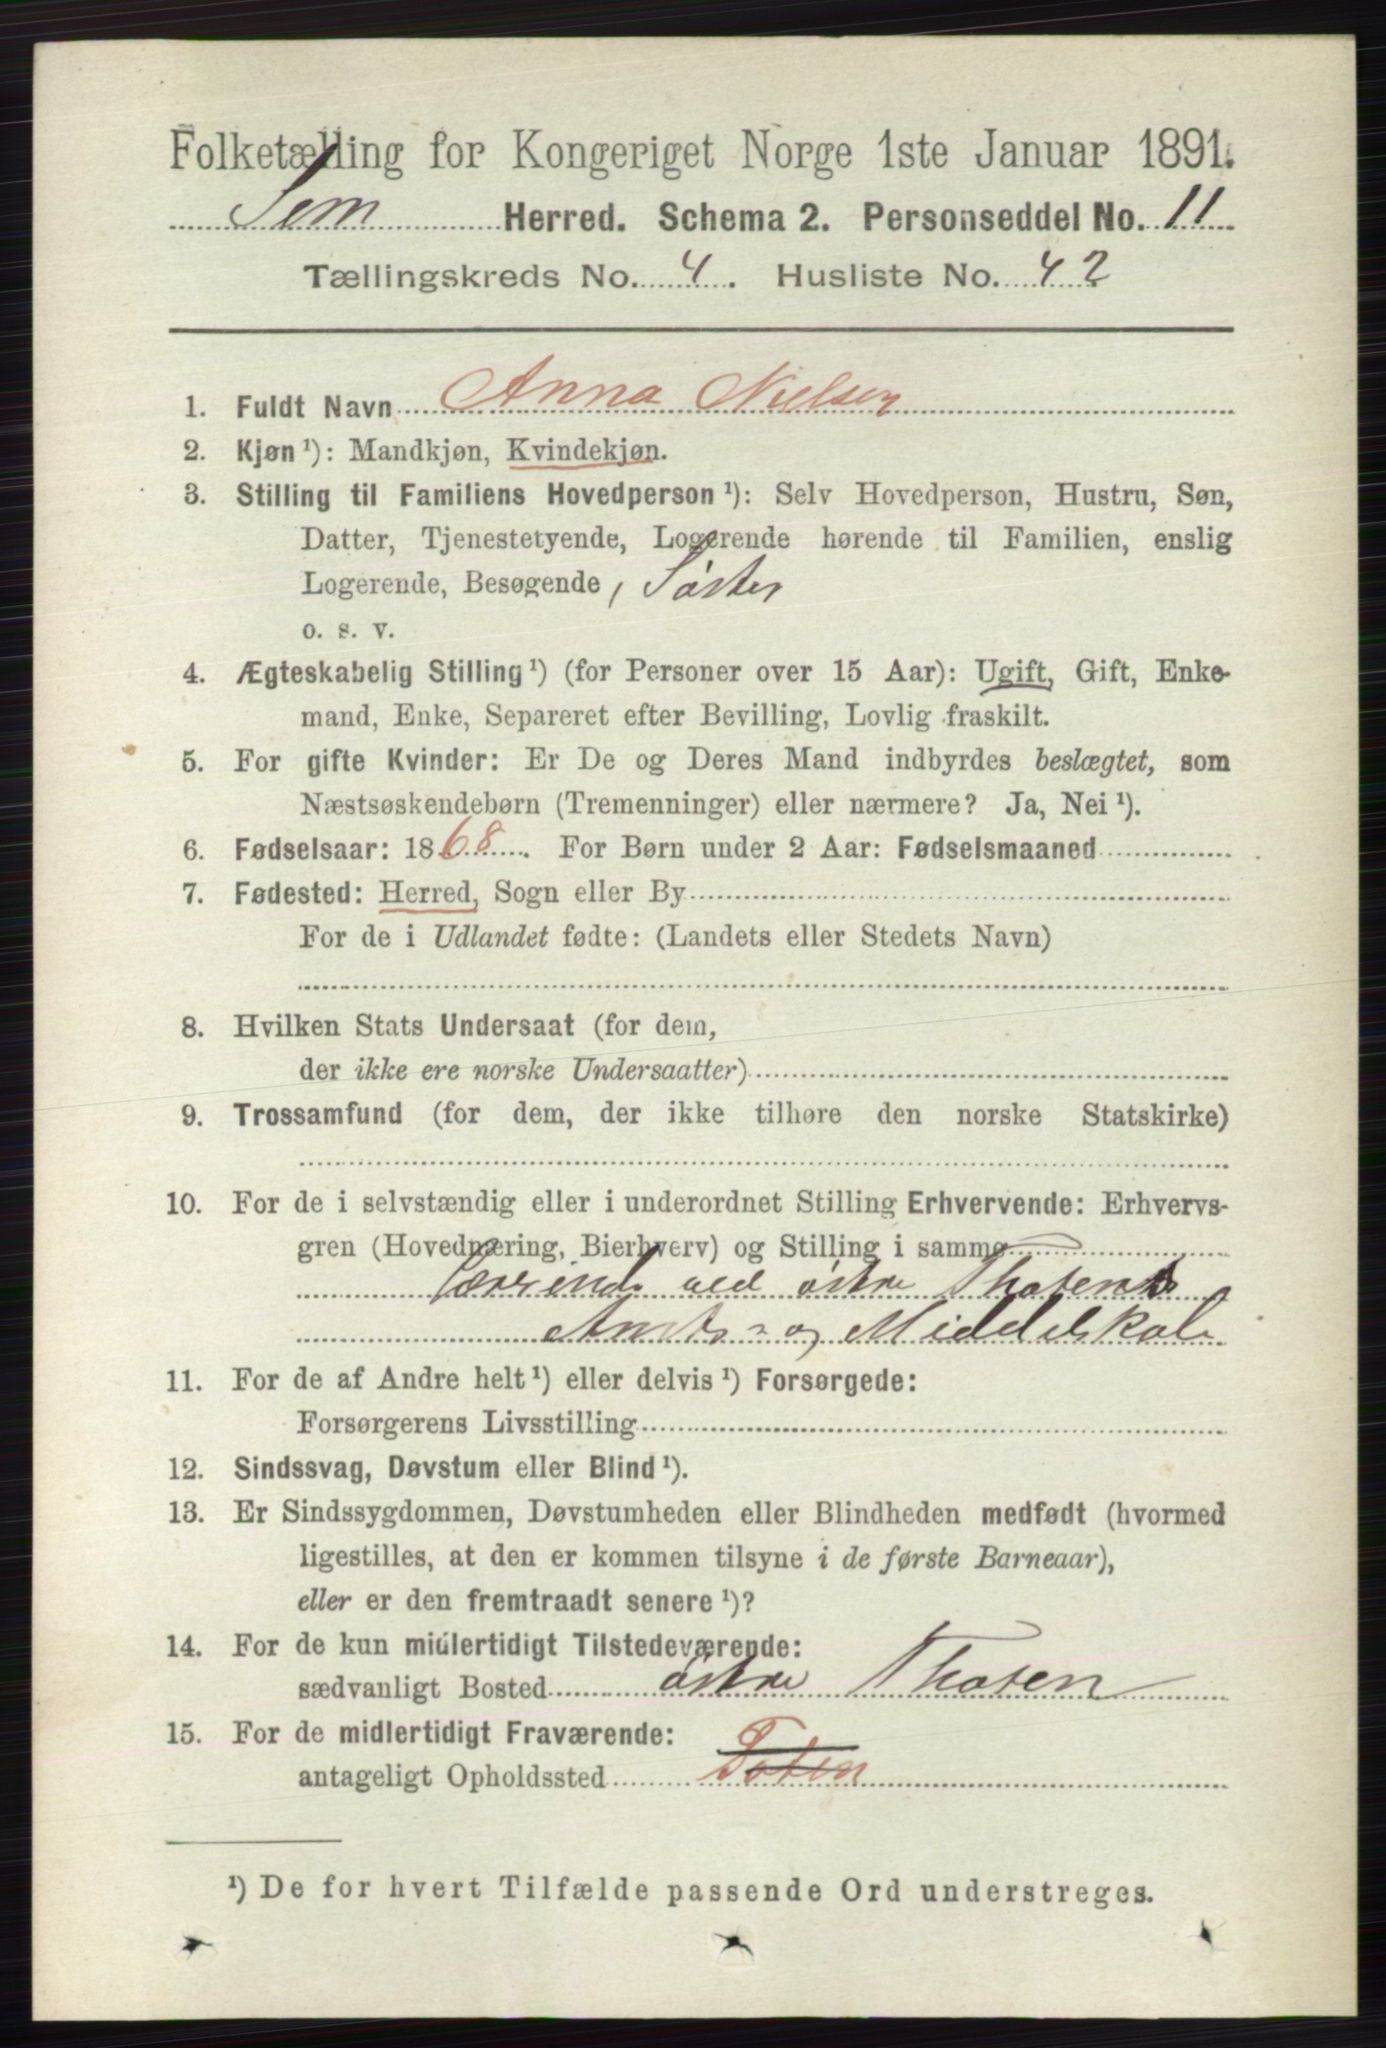 Folketælling for Kongeriget Norge 1ste Januar 1891.
Sem Herred. Schema 2. Personseddel No. 11
Tællingskreds No. 4. Husliste No. 42
1. Fuldt Navn Anna Nielsen
2. Kjøn ¹): Mandkjøn, Kvindekjøn.
3. Stilling til Familiens Hovedperson ¹): Selv Hovedperson, Hustru, Søn,
Datter, Tjenestetyende, Logerende hørende til Familien, enslig
Logerende, Besøgende, Søster
o. s. v.
4. Ægteskabelig Stilling ¹) (for Personer over 15 Aar): Ugift, Gift, Enke-
mand, Enke, Separeret efter Bevilling, Lovlig fraskilt.
5. For gifte Kvinder: Er De og Deres Mand indbyrdes beslægtet, som
Næstsøskendebørn (Tremenninger) eller nærmere? Ja, Nei ¹).
6. Fødselsaar: 1868. For Børn under 2 Aar: Fødselsmaaned
7. Fødested: Herred, Sogn eller By
For de i Udlandet fødte: (Landets eller Stedets Navn)
8. Hvilken Stats Undersaat (for dem,
der ikke ere norske Undersaatter)
9. Trossamfund (for dem, der ikke tilhøre den norske Statskirke)
10. For de i selvstændig eller i underordnet Stilling Erhvervende: Erhvervs-
gren (Hovednæring, Bierhverv) og Stilling i samme
Lærerinde ved østre Thotens
Amts- og Middelskole
11. For de af Andre helt ¹) eller delvis ¹) Forsørgede:
Forsørgerens Livsstilling
12. Sindssvag, Døvstum eller Blind ¹).
13. Er Sindssygdommen, Døvstumheden eller Blindheden medfødt (hvormed
ligestilles, at den er kommen tilsyne i de første Barneaar),
eller er den fremtraadt senere ¹)?
14. For de kun midlertidigt Tilstedeværende:
sædvanligt Bosted østre Thoten
15. For de midlertidigt Fraværende:
antageligt Opholdssted Toten
¹) De for hvert Tilfælde passende Ord understreges.